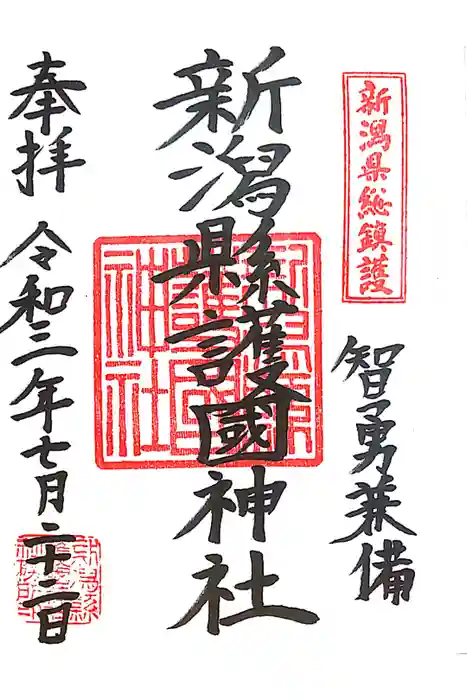 新潟県総鎮護
智勇兼備
新潟縣護國神社
奉拝
令和三年七月二十二日